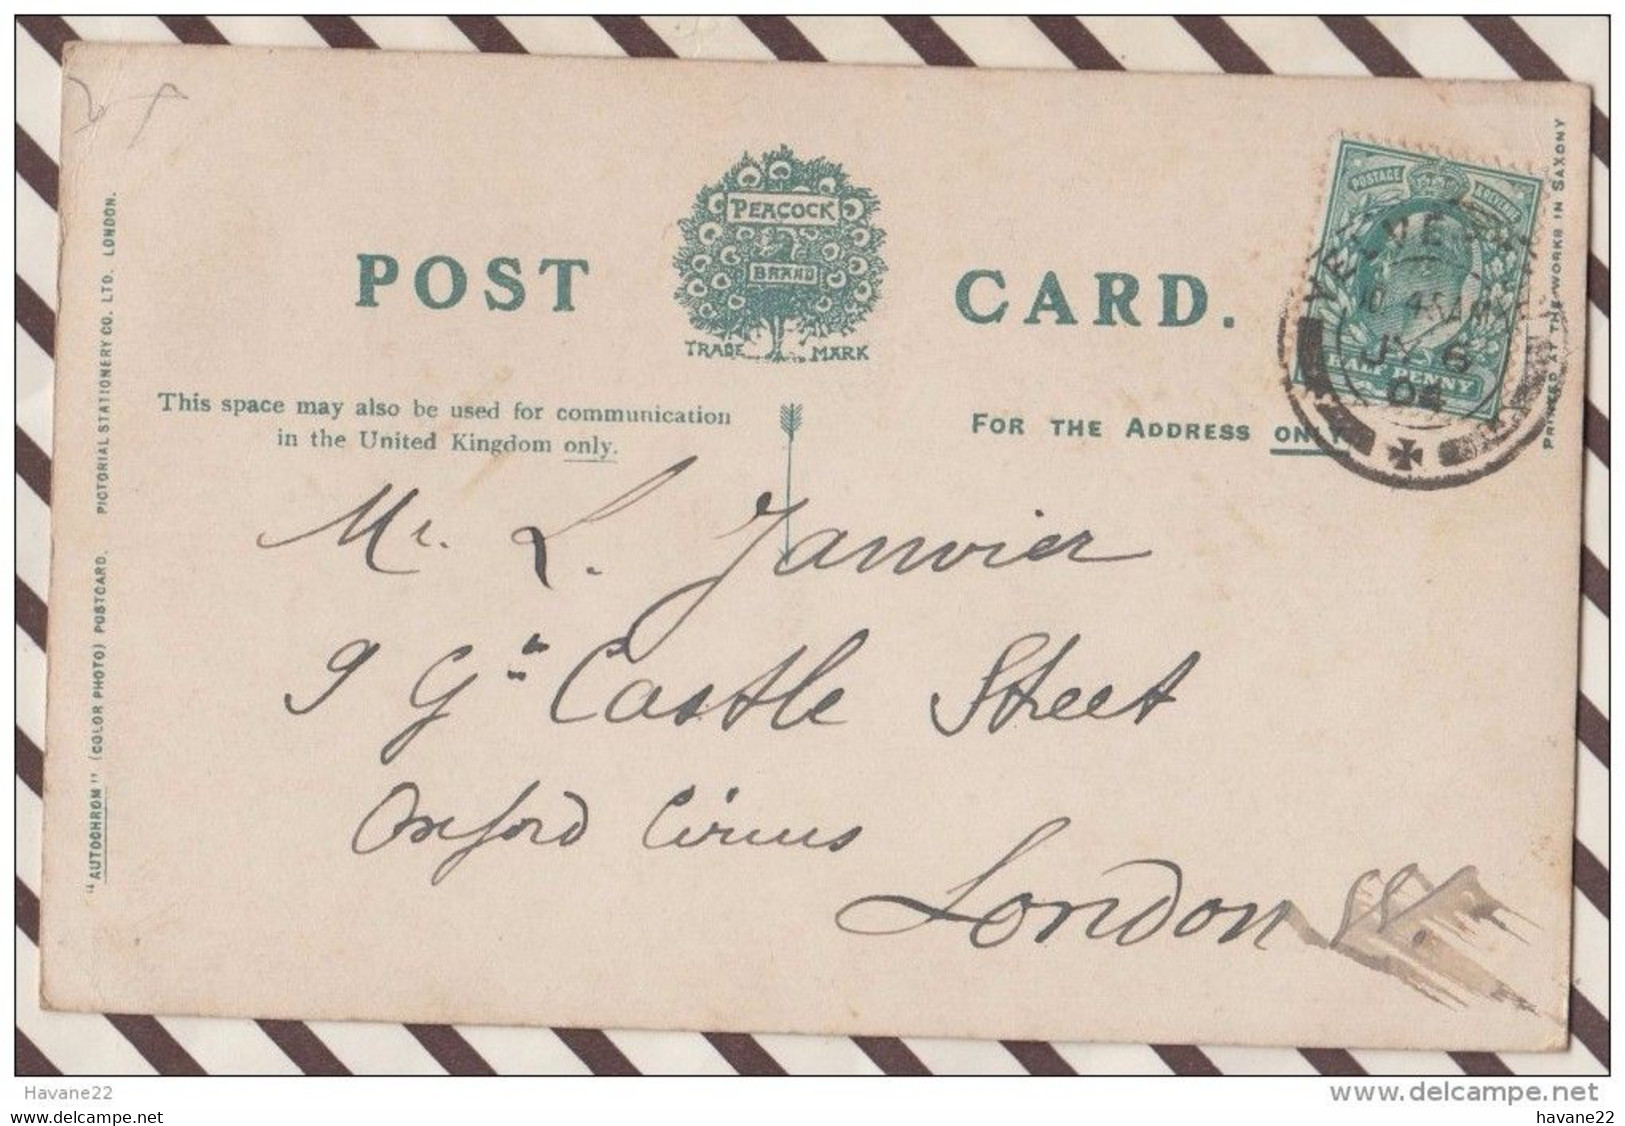 PEACOCK
BRAND
TRADE MARK
POST CARD.
This space may also be used for communication
in the United Kingdom only.
FOR THE ADDRESS ONLY
POSTAGE
HALF PENNY
10.45AM
JY 6
04
Mr. L. Janvier
9 Gt. Castle Street
Oxford Circus
London W.
"AUTOCHROM" (COLOR PHOTO) POSTCARD. PICTORIAL STATIONERY CO. LTD. LONDON.
PRINTED AT THE WORKS IN SAXONY
Havane22
delcampe.net
havane22
havane22